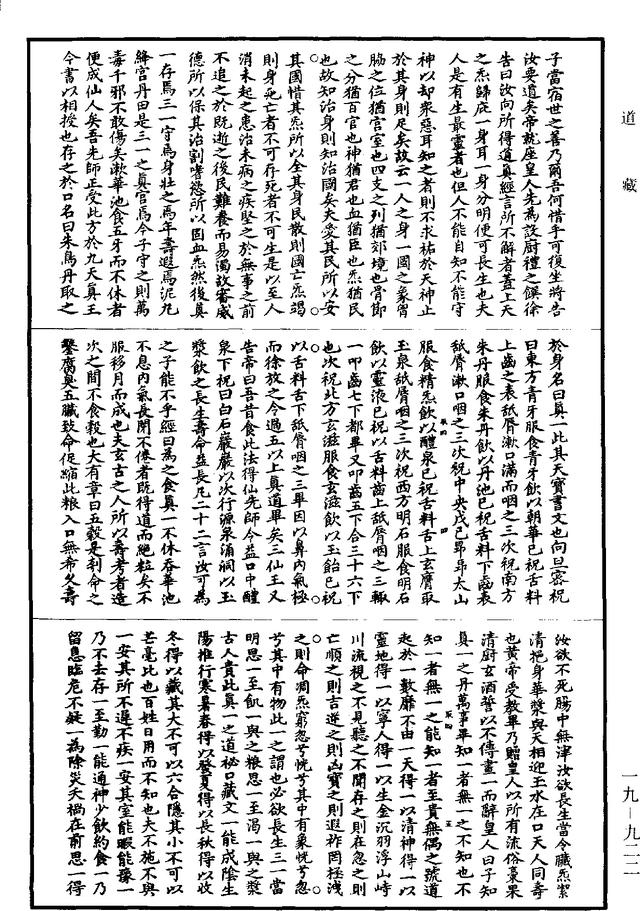 道藏
子當宿世之善乃爾吾何惜乎可復坐將告
汝要道矣帝就座皇人先為設廚禮之饌徐
告曰汝向所得道真經言所不解者蓋上天
之炁歸庇一身耳一身分明便可長生也夫
人是有生最靈者也但人不能自知不能守
神以却眾惡耳知之者則不求祐於天神止
於其身則足矣故云一人之身一國之象胷
脇之位猶宮室也四支之列猶郊境也骨節
之分猶百官也神猶君也血猶臣也炁猶民
也故知治身則知治國矣夫愛其民所以安
其國惜其炁所以全其身民散則國亡炁竭
則身死亡者不可存死者不可生是以至人
消未起之患治未病之疾堅之於無事之前
不追之於既逝之後民難養而易濁故審威
德所以保其治割嗜慾所以固血炁然後真
一存焉三一守焉身壯之為年壽遐焉泥丸
絳宮丹田是三一之真宮焉令子守之則萬
毒千邪不敢傷矣漱華池食五牙而不休者
便成仙人矣吾先師正受此方於九天真王
今書以相授也存之於口名曰朱鳥丹取之
於身名曰真一此其天寶書文也向旦密祝
曰東方青牙服食青牙飲以朝華已祝舌料
上齒之表舐脣漱口滿而咽之三次祝南方
朱丹服食朱丹飲以丹池已祝舌料下齒表
舐脣漱口咽之三次祝中央戊己昴昴太山
服食精炁飲以醴泉已祝舌料舌上玄膺取
玉泉舐脣咽之三次祝西方明石服食明石
飲以靈液已祝以舌料齒上舐脣咽之三輙
一叩齒七下都畢又叩齒五下合三十六下
也次祝此方玄滋服食玄滋飲以玉飴已祝
以舌料舌下舐脣咽之三畢因以鼻內氣極
而徐放之令過五以上真道畢矣三仙王又
告帝曰吾昔食此法得仙先師令益口中醴
泉下祝曰白石巖巖以次行源泉涌洞以玉
漿飲之長生壽命益長凡二十二言汝可為
之子能不乎經曰為之食真一不休吞華池
不息內氣長閉不倦者既得道而絕粒矣不
服移月而成也夫玄古之人所以壽考者造
次之間不食穀也大有章曰五穀是刳命之
鑿腐臭五臟致命促縮此粮入口無希久壽
汝欲不死腸中無滓汝欲長生當令臟炁潔
清挹身華漿與天相迎玉水在口天人同壽
也黃帝受教畢乃贈皇人以所有流俗棗果
清廚玄酒誓以不傳晝一而辭皇人曰子知
真一之丹萬事畢知一者無一之不知也不
知一者無一之能知一者至貴無偶之號道
起於一數靡不由一天得一以清神得一以
靈地得一以寧人得一以生金沉羽浮山峙
川流視之不見聽之不聞存之則在忽之則
亡順之則吉逆之則凶寶之則遐祚罔極洩
之則命凋炁窮忽兮恍兮其中有象恍兮忽
兮其中有物此一之謂也必欲長生三一當
明思一至飢一與之粮思一至渴一與之漿
古人貴此真一之道祕口藏文一能成陰生
陽推行寒暑春得以發夏得以長秋得以收
冬得以藏其大不可以六合隱其小不可以
芒毫比也百姓日用而不知也夫不施不與
一安其所不遲不疾一安其室能暇能豫一
乃不去存一至勤一能通神少飲約食一乃
留息臨危不疑一為除災夭禍在前思一得
一九－九二二